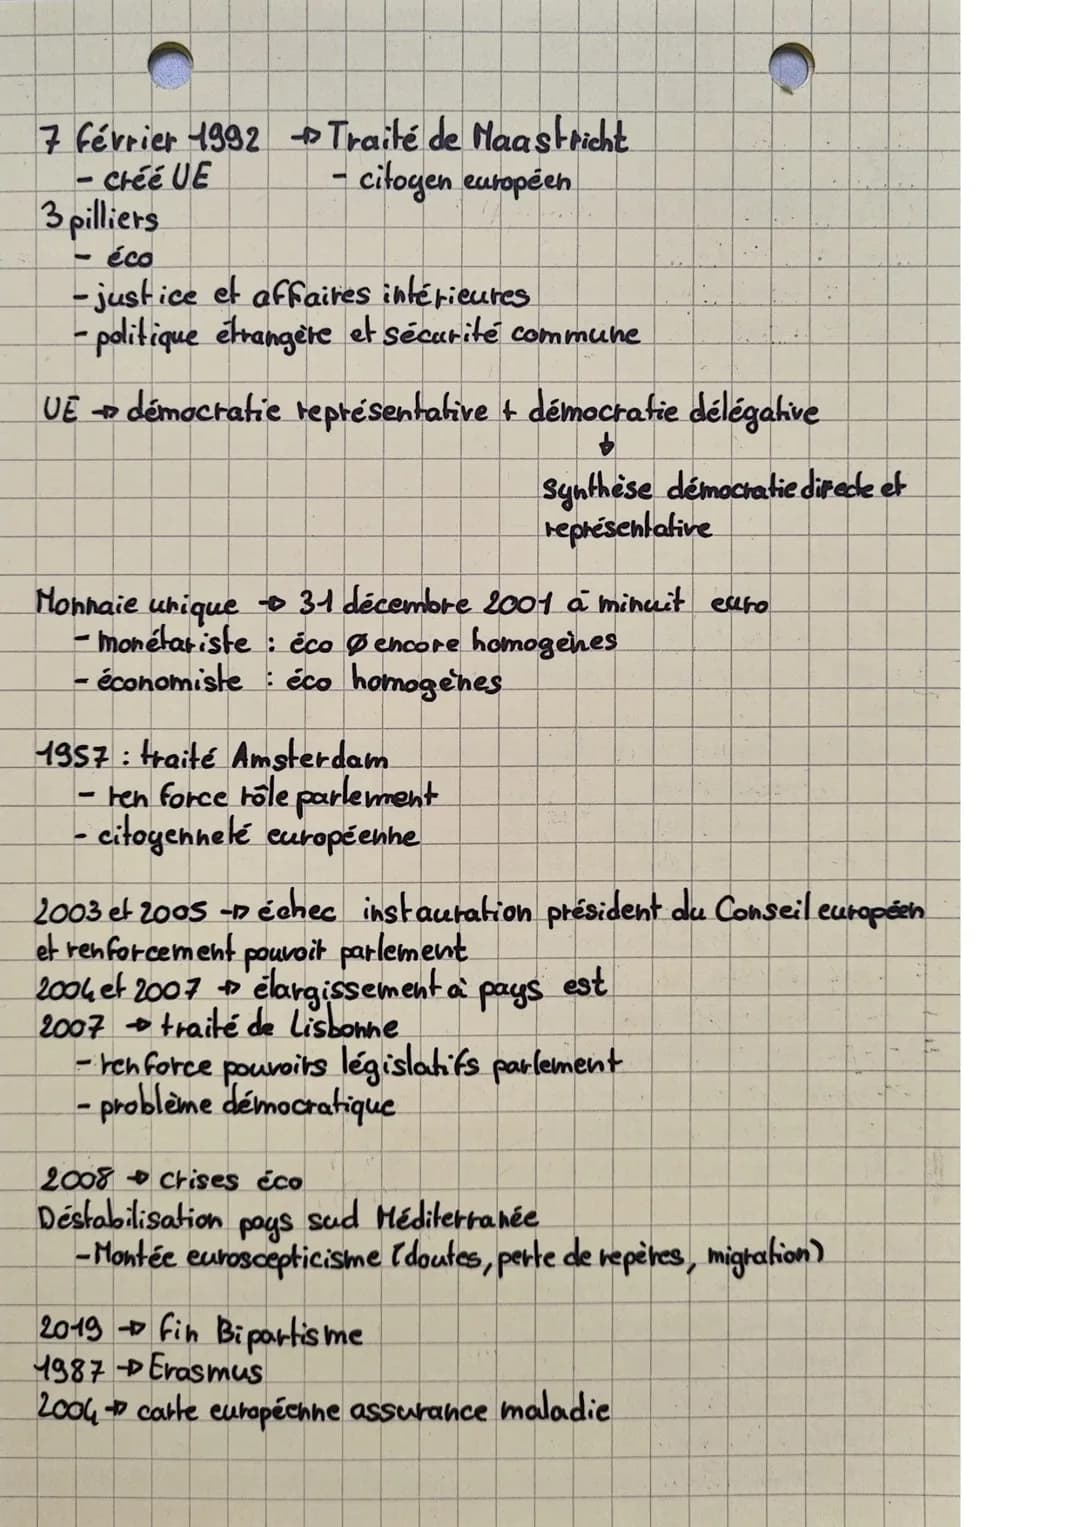 7 février 1992 → Traité de Maastricht
- créé UE - citoyen européen
3 pilliers
- éco
- justice et affaires intérieures
- politique étrangère et sécurité commune
UE → démocratie représentative + démocratie délégative
↓
Synthèse démocratie directe et
représentative
Monnaie unique → 31 décembre 2001 à minuit euro
- monétariste : éco Ø encore homogènes
- économiste : éco homogènes
1957 : traité Amsterdam
- renforce rôle parlement
- citoyenneté européenne
2003 et 2005 → échec instauration président du Conseil européen
et renforcement pouvoir parlement
2004 et 2007 → élargissement à pays est
2007 → traité de Lisbonne
- renforce pouvoirs législatifs parlement
- problème démocratique
2008 → crises éco
Déstabilisation pays sud Méditerranée
- Montée euroscepticisme (doutes, perte de repères, migration)
2019 → fin Bipartisme
1987 → Erasmus
2004 → carte européenne assurance maladie